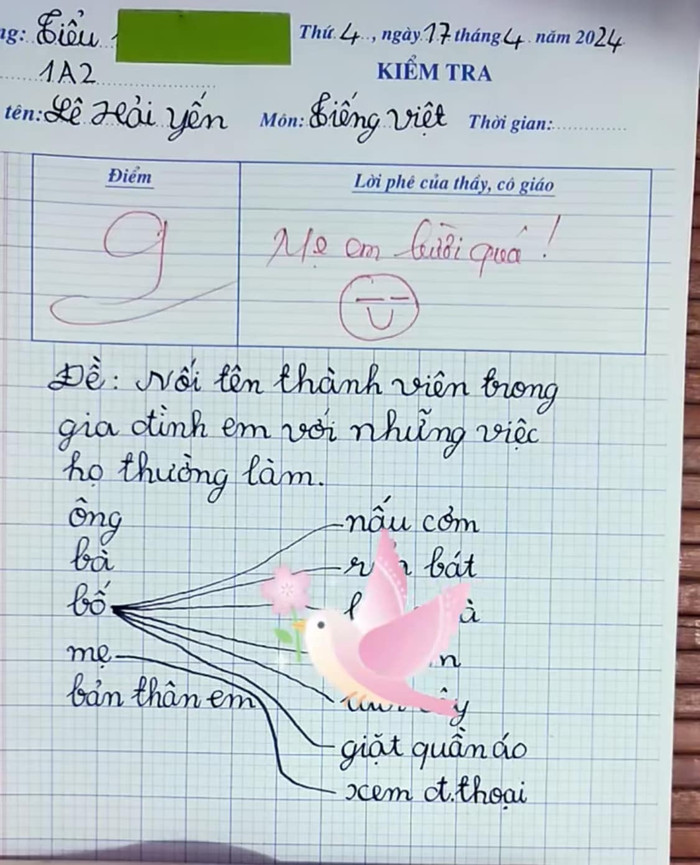 ng: Tiểu
Thứ 4, ngày 17 tháng 4 năm 2024
1A2
KIỂM TRA
tên: Lê Hải Yến Môn: Tiếng Việt Thời gian:
Điểm
Lời phê của thầy, cô giáo
9
Mẹ em lười quá!
Đề: Nối tên thành viên trong
gia đình em với những việc
họ thường làm.
ông
nấu cơm
bà
bát
bố
mẹ
bản thân em
giặt quần áo
xem đ.thoại